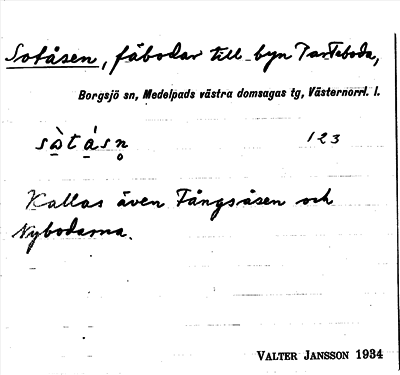 Sotåsen, fäbodar till byn Parteboda,
Borgsjö sn, Medelpads västra domsagas tg, Västernorrl. l.
sòtásn̥ 123
Kallas även Tångsåsen och
Nybodarna.
VALTER JANSSON 1934